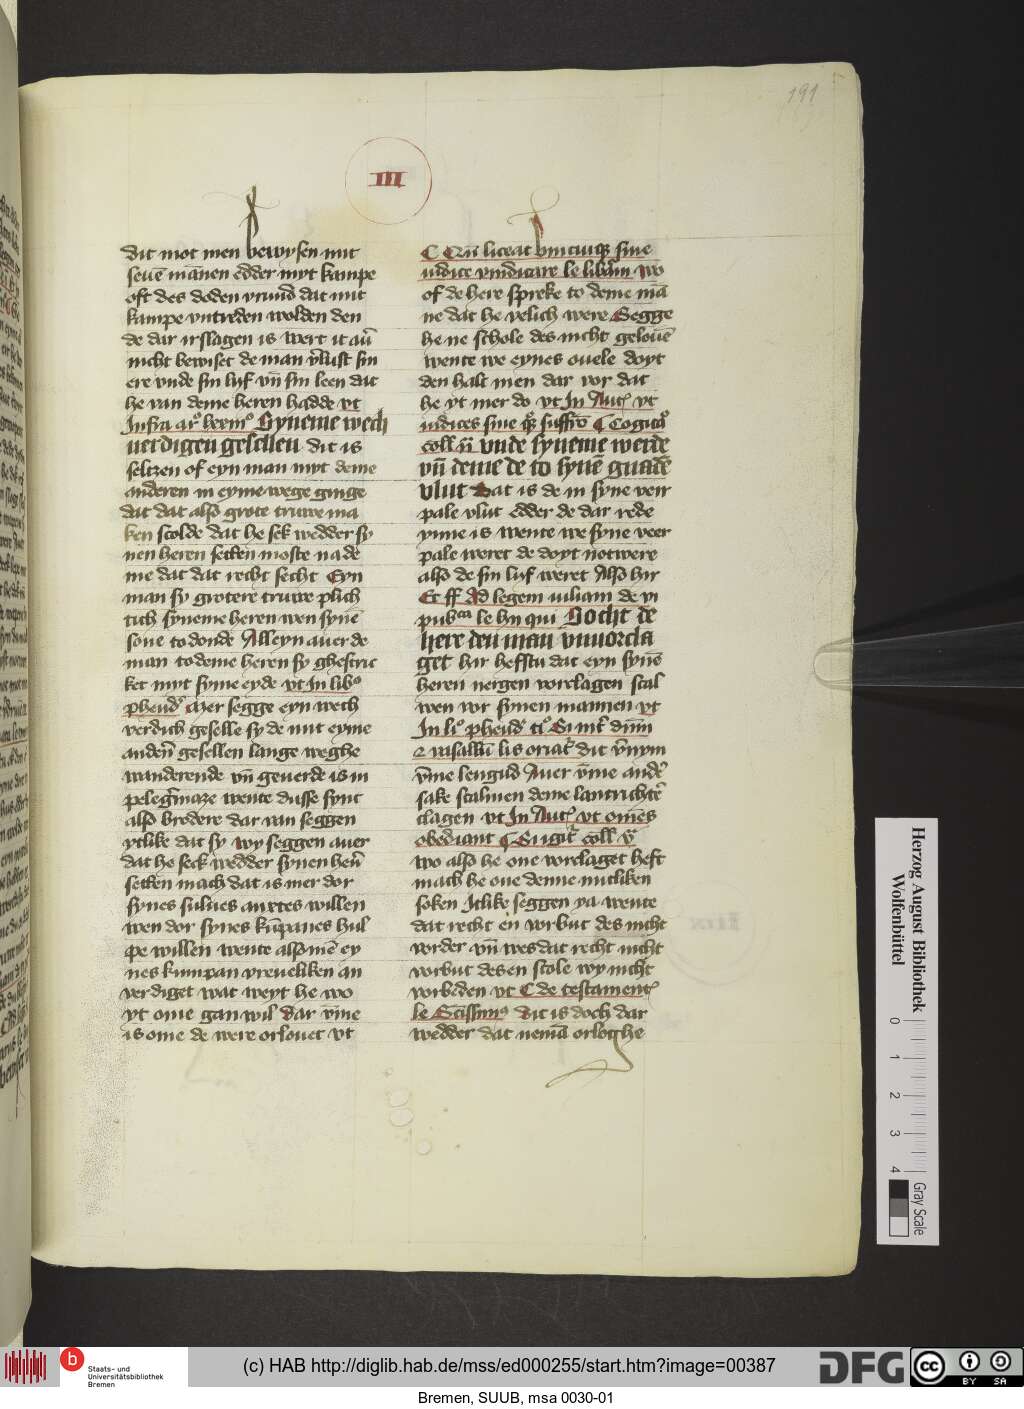 191
III
dit mot men bewysen mit
seuē manen edder myt kampe
oft des doden vrund dat mit
kampe vntreden wolden den
de dar irslagen is wert it au̅
nicht bewiset de man v̅lust sin
ere vnde sin lyf vn̅ sin leen dat
he van deme heren hadde vt
Infra ar
Syneme wech
uerdigen gesellen dit is
seltzen of eyn man myt deme
anderen in eyme wege ginge
dat dat also grote truwe ma
ken scolde dat he sek wedder sy
nen heren setten moste na de
me dat dat recht secht Eyn
man sy grotere truwe plich
tich syneme heren wen synē
sone to donde Alleyn auer de
man to deme heren sy ghestric
ket myt syme eyde vt In lib
pheud auer segge eyn wech
verdich geselle sy de mit eyme
anden̅ gesellen lange weghe
wanderende vn̅ geuerde is in
pelegrimaze wente dusse synt
also brodere dar van seggen
ytlike dat sy wy seggen auer
dat he seck wedder synen hen̅
setten mach dat is mer dor
synes sulues anxtes willen
wen dor synes ku̅panes hul
pe willen wente also me̅ ey
nes kumpan vreueliken an
verdiget wat weyt he wo
yt ome gan wil dar v̅me
is ome de were orlouet vt
C Qn̅ liceat vnicuiqꝫ sine
iudice vindicare le libam wo
of de here spreke to deme mā
ne dat he velich were Segge
he ne schole des nicht gelouē
wente we eynes ouele doyt
den halt men dar vor dat
he yt mer do vt In Aut vt
iudices sine qꝫ suffrō ¶ Cogita
coll n̅ vnde syneme werde
vn̅ deme de to synē gnadē
vlut Dat is de in syne veir
pale vlut edder de dar rede
ynne is wente we syne veer
pale weret de doyt notwere
also de sin lyf weret Also hir
Et ff Ad legem iuliam de vi
pub le hn qui Docht de
here den man vnuorcla
get hir hefstu dat eyn synē
heren nergen vorclagen scal
wen vor synen mannen vt
In li pheud ti Si int dnm
⁊ vasallū lis oriat dit v̅nym
v̅me lengud Auer v̅me ander
sake scalmen deme lantrichter
clagen vt In Aut vt omēs
obediant ¶ Si igit coll v
wo also he one vorclaget heft
mach he one denne mitliken
soken Itlike seggen ya wente
dat recht en vorbut des nicht
vorder vn̅ wes dat recht nicht
vorbut des en scole wy nicht
vorbeden vt C de testament
le Sc̅issim dit is doch dar
wedder dat nemā orloghe
Herzog August Bibliothek
Wolfenbüttel
0 1 2 3 4
Gray Scale
b
Staats- und
Universitätsbibliothek
Bremen
(c) HAB http://diglib.hab.de/mss/ed000255/start.htm?image=00387
DFG
cc BY SA
Bremen, SUUB, msa 0030-01